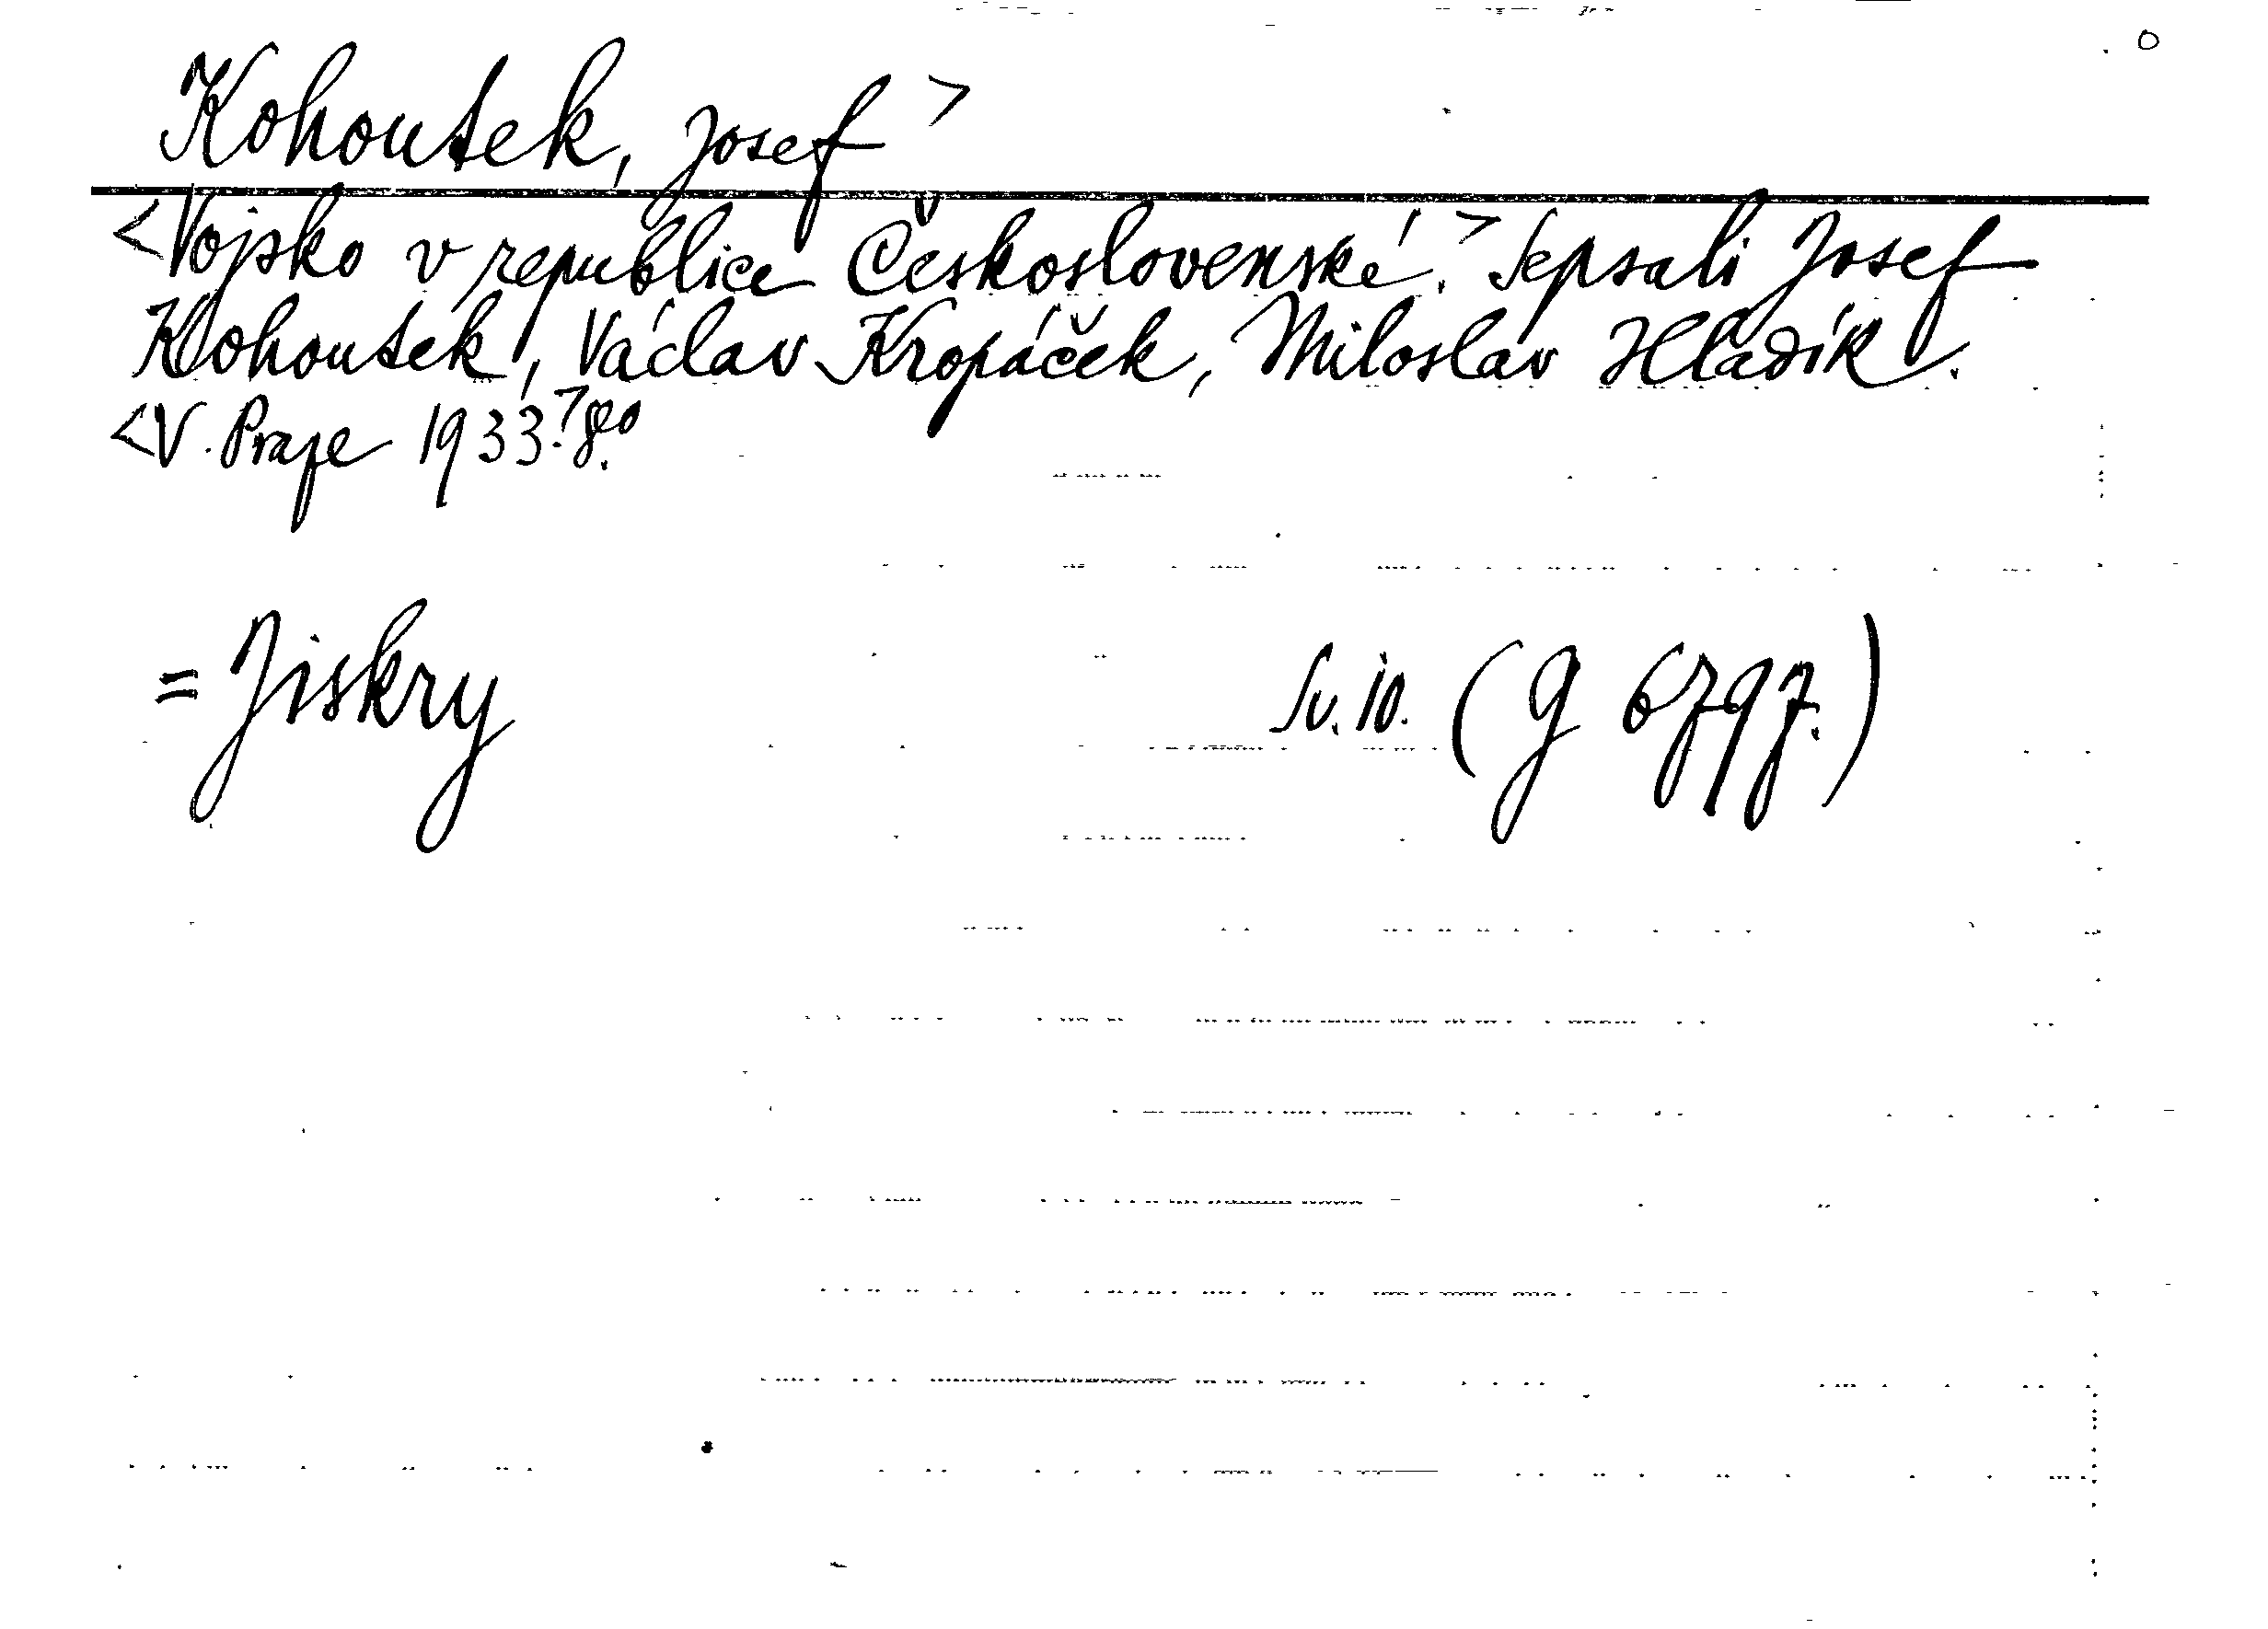 Kohoutek, Josef >
<Vojsko v republice Československé.> Sepsali Josef
Kohoutek, Václav Kropáček, Miloslav Hladík.
<V Praze 1933.> 8°.
= Jiskry Sv. 10. (g 6797.)